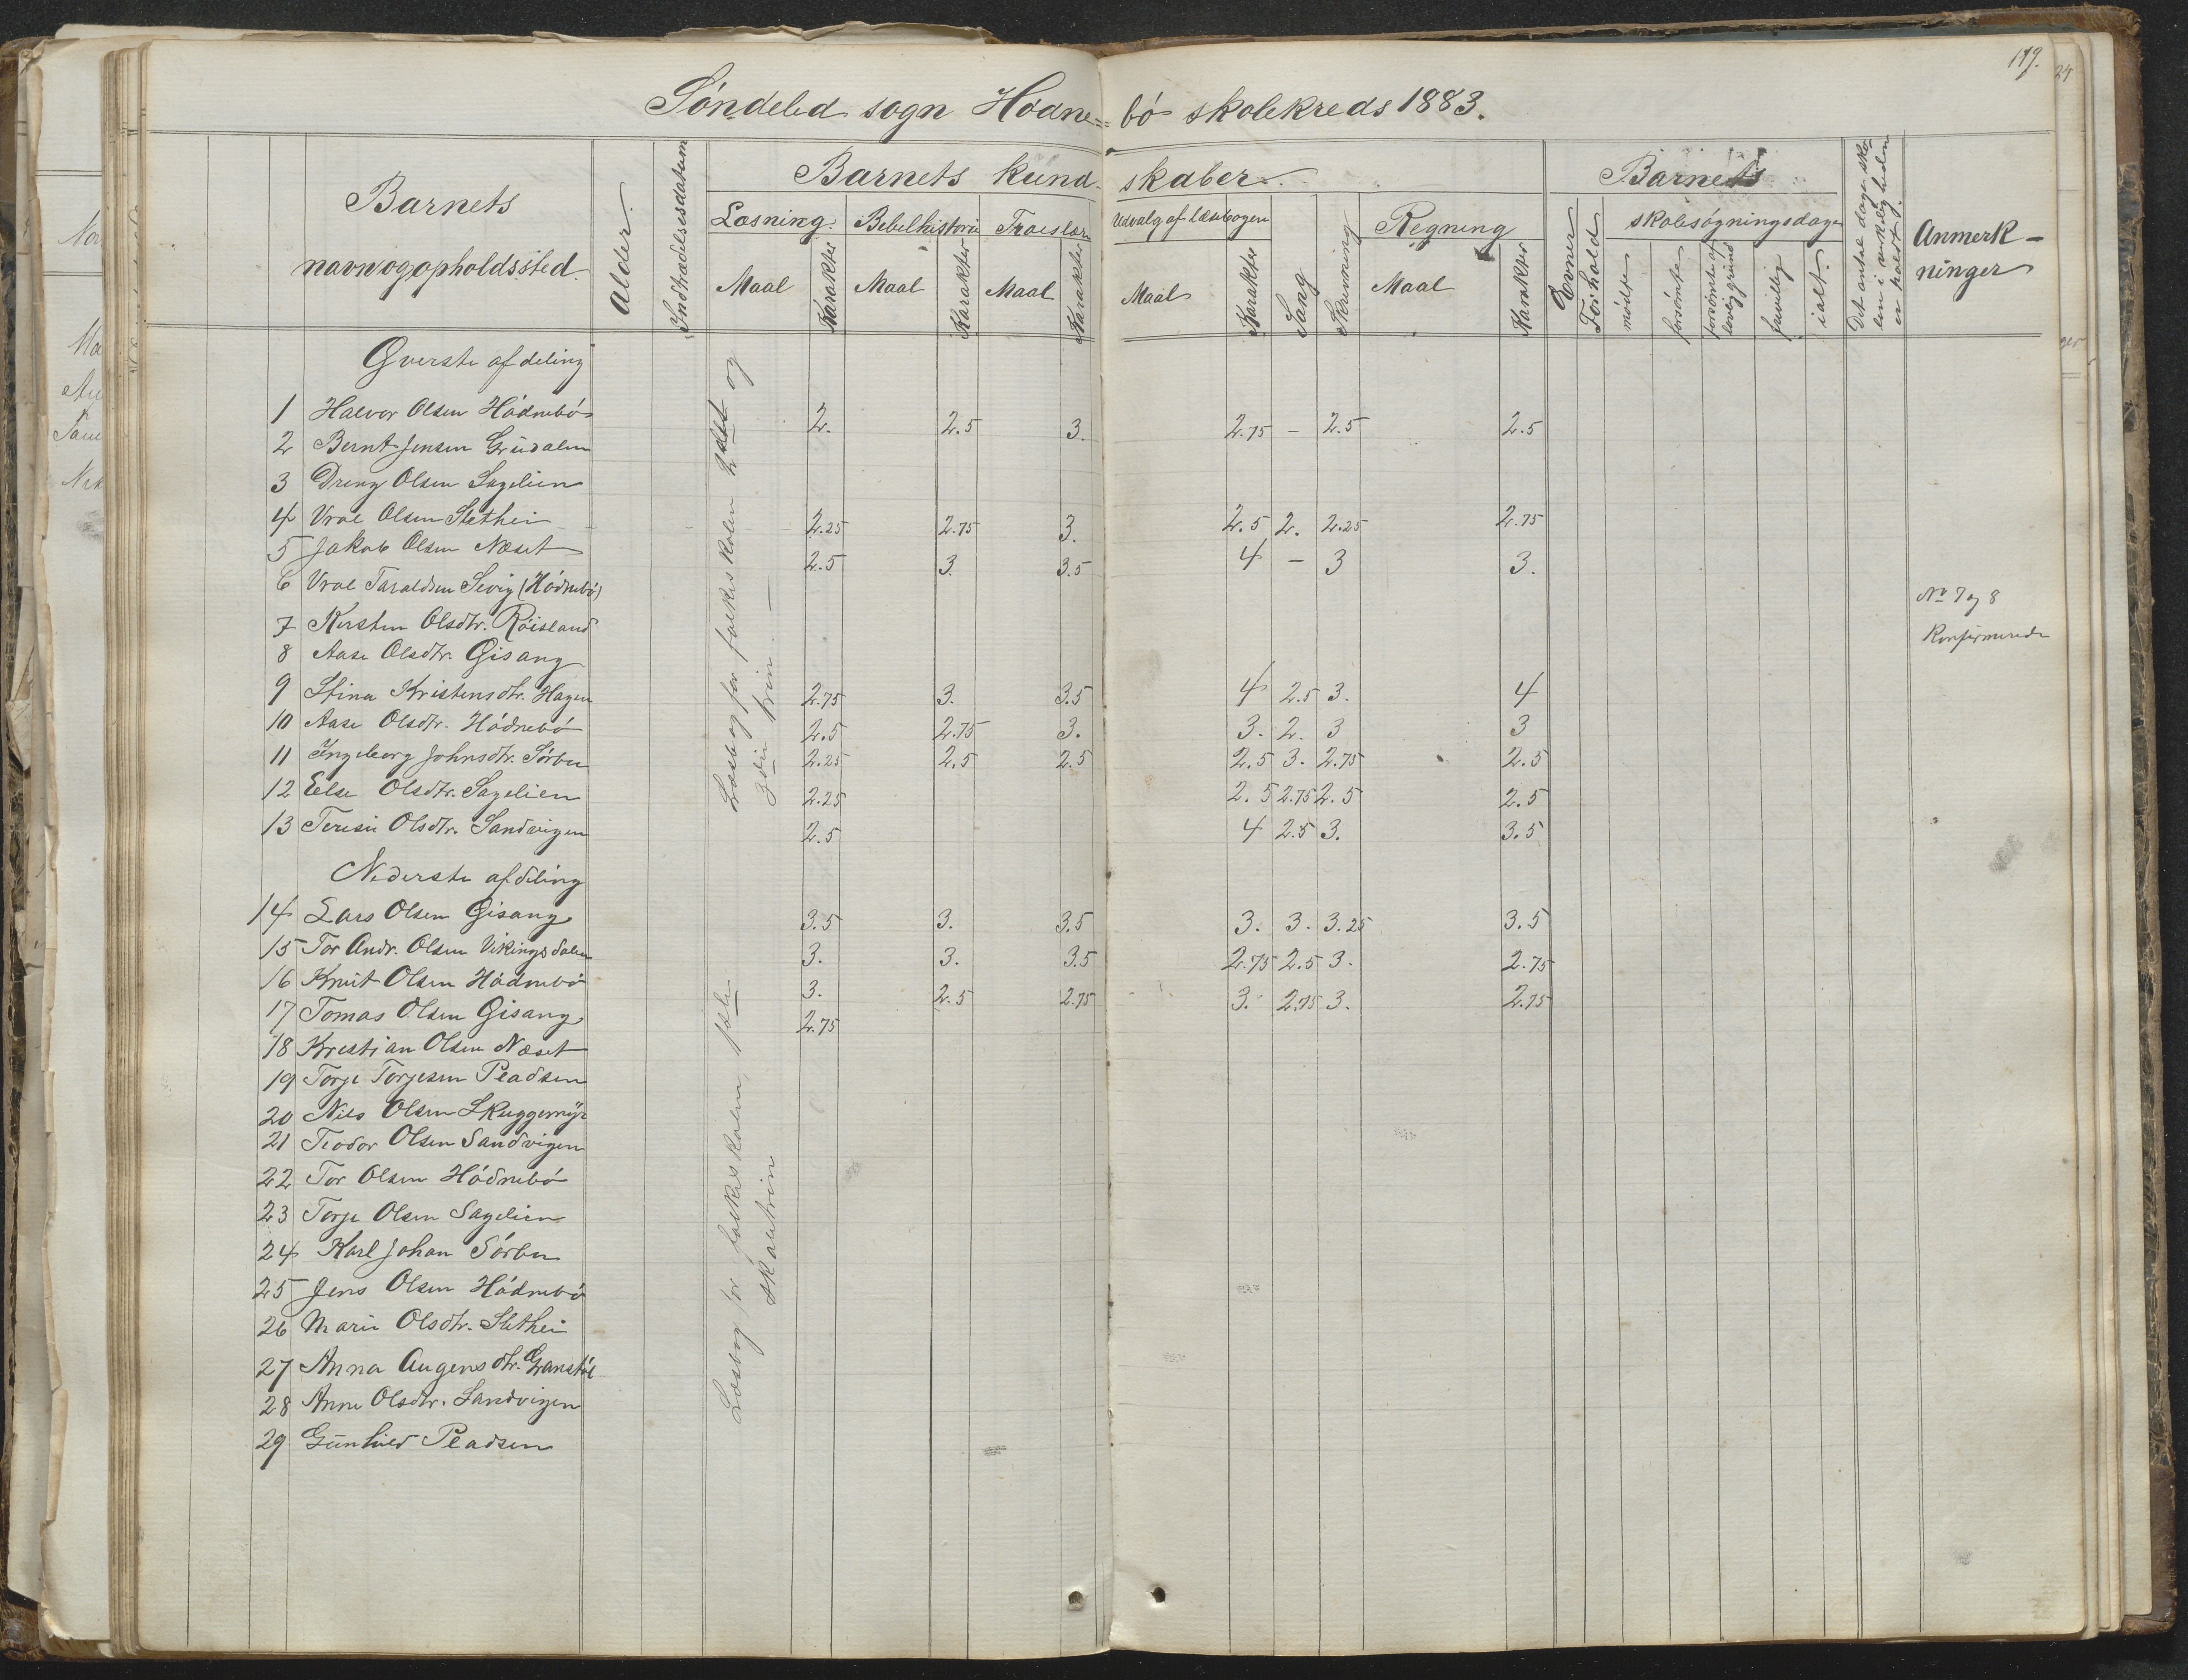 179.
Søndeled sogn Hødne= bø skolekreds 1883.
Barnets navn og opholdssted.
Alder.
Indtrædelsesdatum
Barnets kund- skaber.
Læsning. Bibelhistorie Troeslære Udvalg af læsebogen Sang Skrivning Regning
Maal Karakter Maal Karakter Maal Karakter Maal Karakter Maal Karakter
Evner
Forhold
Barnets skolesøgningsdage
mødte forsømte forsømte af lovlig grund frivillig ialt.
Det antal dage skolen i virkeligheden er holdt.
Anmerk-
ninger
Øverste afdeling
1 Halvor Olsen Hødnebø 2. 2.5 3. 2.75 – 2.5 2.5
2 Bernt Jensen
3 Dreng Olsen Sagelien
4 Vrol Olsen Slethei 2.25 2.75 3. 2.5 2. 2.25 2.75
5 Jakob Olsen Næset 2.5 3. 3.5 4 – 3 3.
6 Vrol Taraldsen (Hødnebø)
7 Kirsten Olsdtr. Röisland
8 Aase Olsdtr. Gisang
9 Stina Kristensdtr. Hagen 2.75 3. 3.5 4 2.5 3. 4
10 Aase Olsdtr. Hødnebø 2.5 2.75 3. 3. 2. 3 3
11 Ingeborg Johnsdtr. Sørbø 2.25 2.5 2.5 2.5 3. 2.75 2.5
12 Else Olsdtr. Sagelien 2.25 2.5 2.75 2.5 2.5
13 Teresie Olsdtr. Sandvigen 2.5 4 2.5 3. 3.5
Læsebog for folkeskolen 2det og
3die trin. —
No 7 og 8
Konfirmerede
Nederste afdeling
14 Lars Olsen Gisang 3.5 3. 3.5 3. 3. 3.25 3.5
15 Tor Andr. Olsen Vikingsdalen 3. 3. 3.5 2.75 2.5 3. 2.75
16 Knut Olsen Hødnebø 3. 2.5 2.75 3. 2.75 3. 2.75
17 Tomas Olsen Gisang 2.75
18 Kristian Olsen Næset
19 Torje Torjesen Pladsen
20 Nils Olsen Skuggemyr
21 Teodor Olsen Sandvigen
22 Tor Olsen Hødnebø
23 Torje Olsen Sagelien
24 Karl Johan Sørbø
25 Jens Olsen Hødnebø
26 Marie Olsdtr. Slethei
27 Anna Augensdtr. Granstøl
28 Anne Olsdtr. Sandvigen
29 Gunhild Pladsen
Læsebog for folkeskolen, 1ste
skoletrin